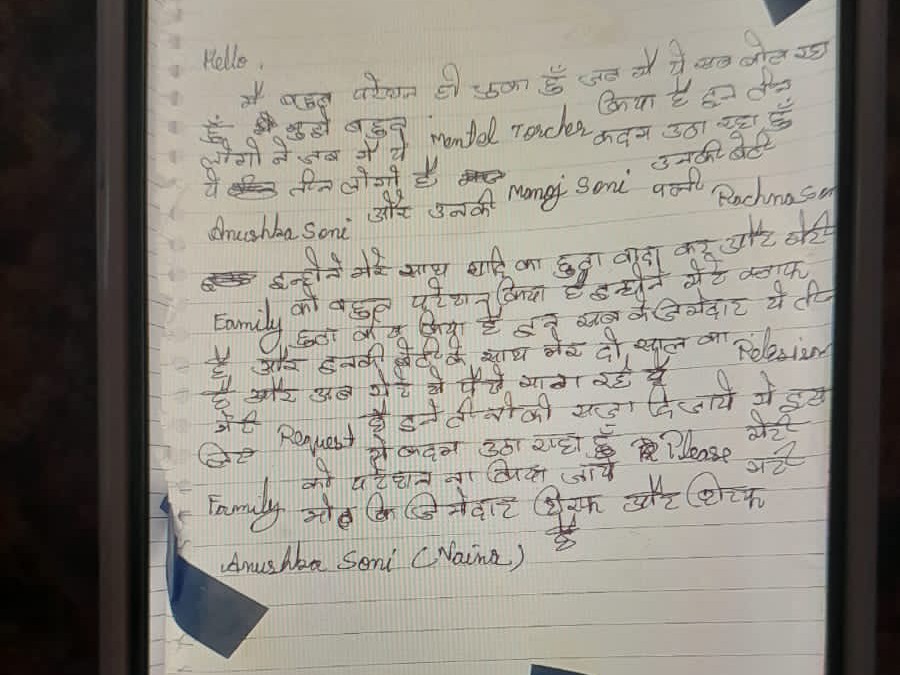 Hello.
मै बहुत परेशान हो चुका हूँ जब मै ये सब बोल रहा
हूँ मुझे बहुत Mental Torcher किया है इन तीन
लोगो ने जब मै ये कदम उठा रहा हूँ
ये तीन लोगो है Manoj Soni उनकी बेटी
Anushka Soni और उनकी पत्नी Rachna Son
इन्होने मेरे साथ शादि का झुठा वादा कर और मेरी
Family को बहुत परेशान किया है इन्होने मेरे खलाफ
झुठा केस किया है इन सब के जिमेदार ये तीन
है और इनकी बेटी के साथ मेरे दो साल का Rilesion
है और अब मेरे से पैसे माग रहे है
मेरी Request है इन तीनो को सजा दिजाये मे इस
लिए ये कदम उठा राहा हुँ Please मेरी
Family को परेशान ना किया जाये मेरी
मोत कि जिमेदार सिरफ और सिरफ
Anushka Soni (Naina) है